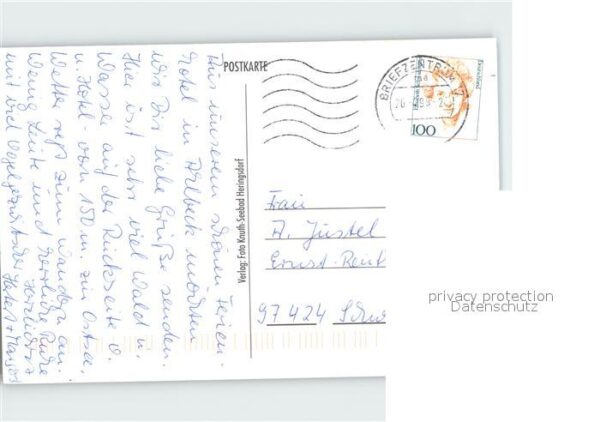 Aus unserem schönen Ferien-
hotel in Ahlbeck möchten
wir Dir liebe Grüße senden.
Hier ist sehr viel Wald u.
Wasser auf der Rückseite v.
u. Hotel - von 150 m. zur Ostsee,
Wetter regt zum wandern an.
Wenig Leute und herrliche Ruhe
mit viel Vogelgezwitscher
POSTKARTE
Verlag: Foto Knuth-Seebad Heringsdorf
BRIEFZENTRUM
100
Frau
A. Jüstel
Ernst-Reut
97424 Schw
privacy protection
Datenschutz